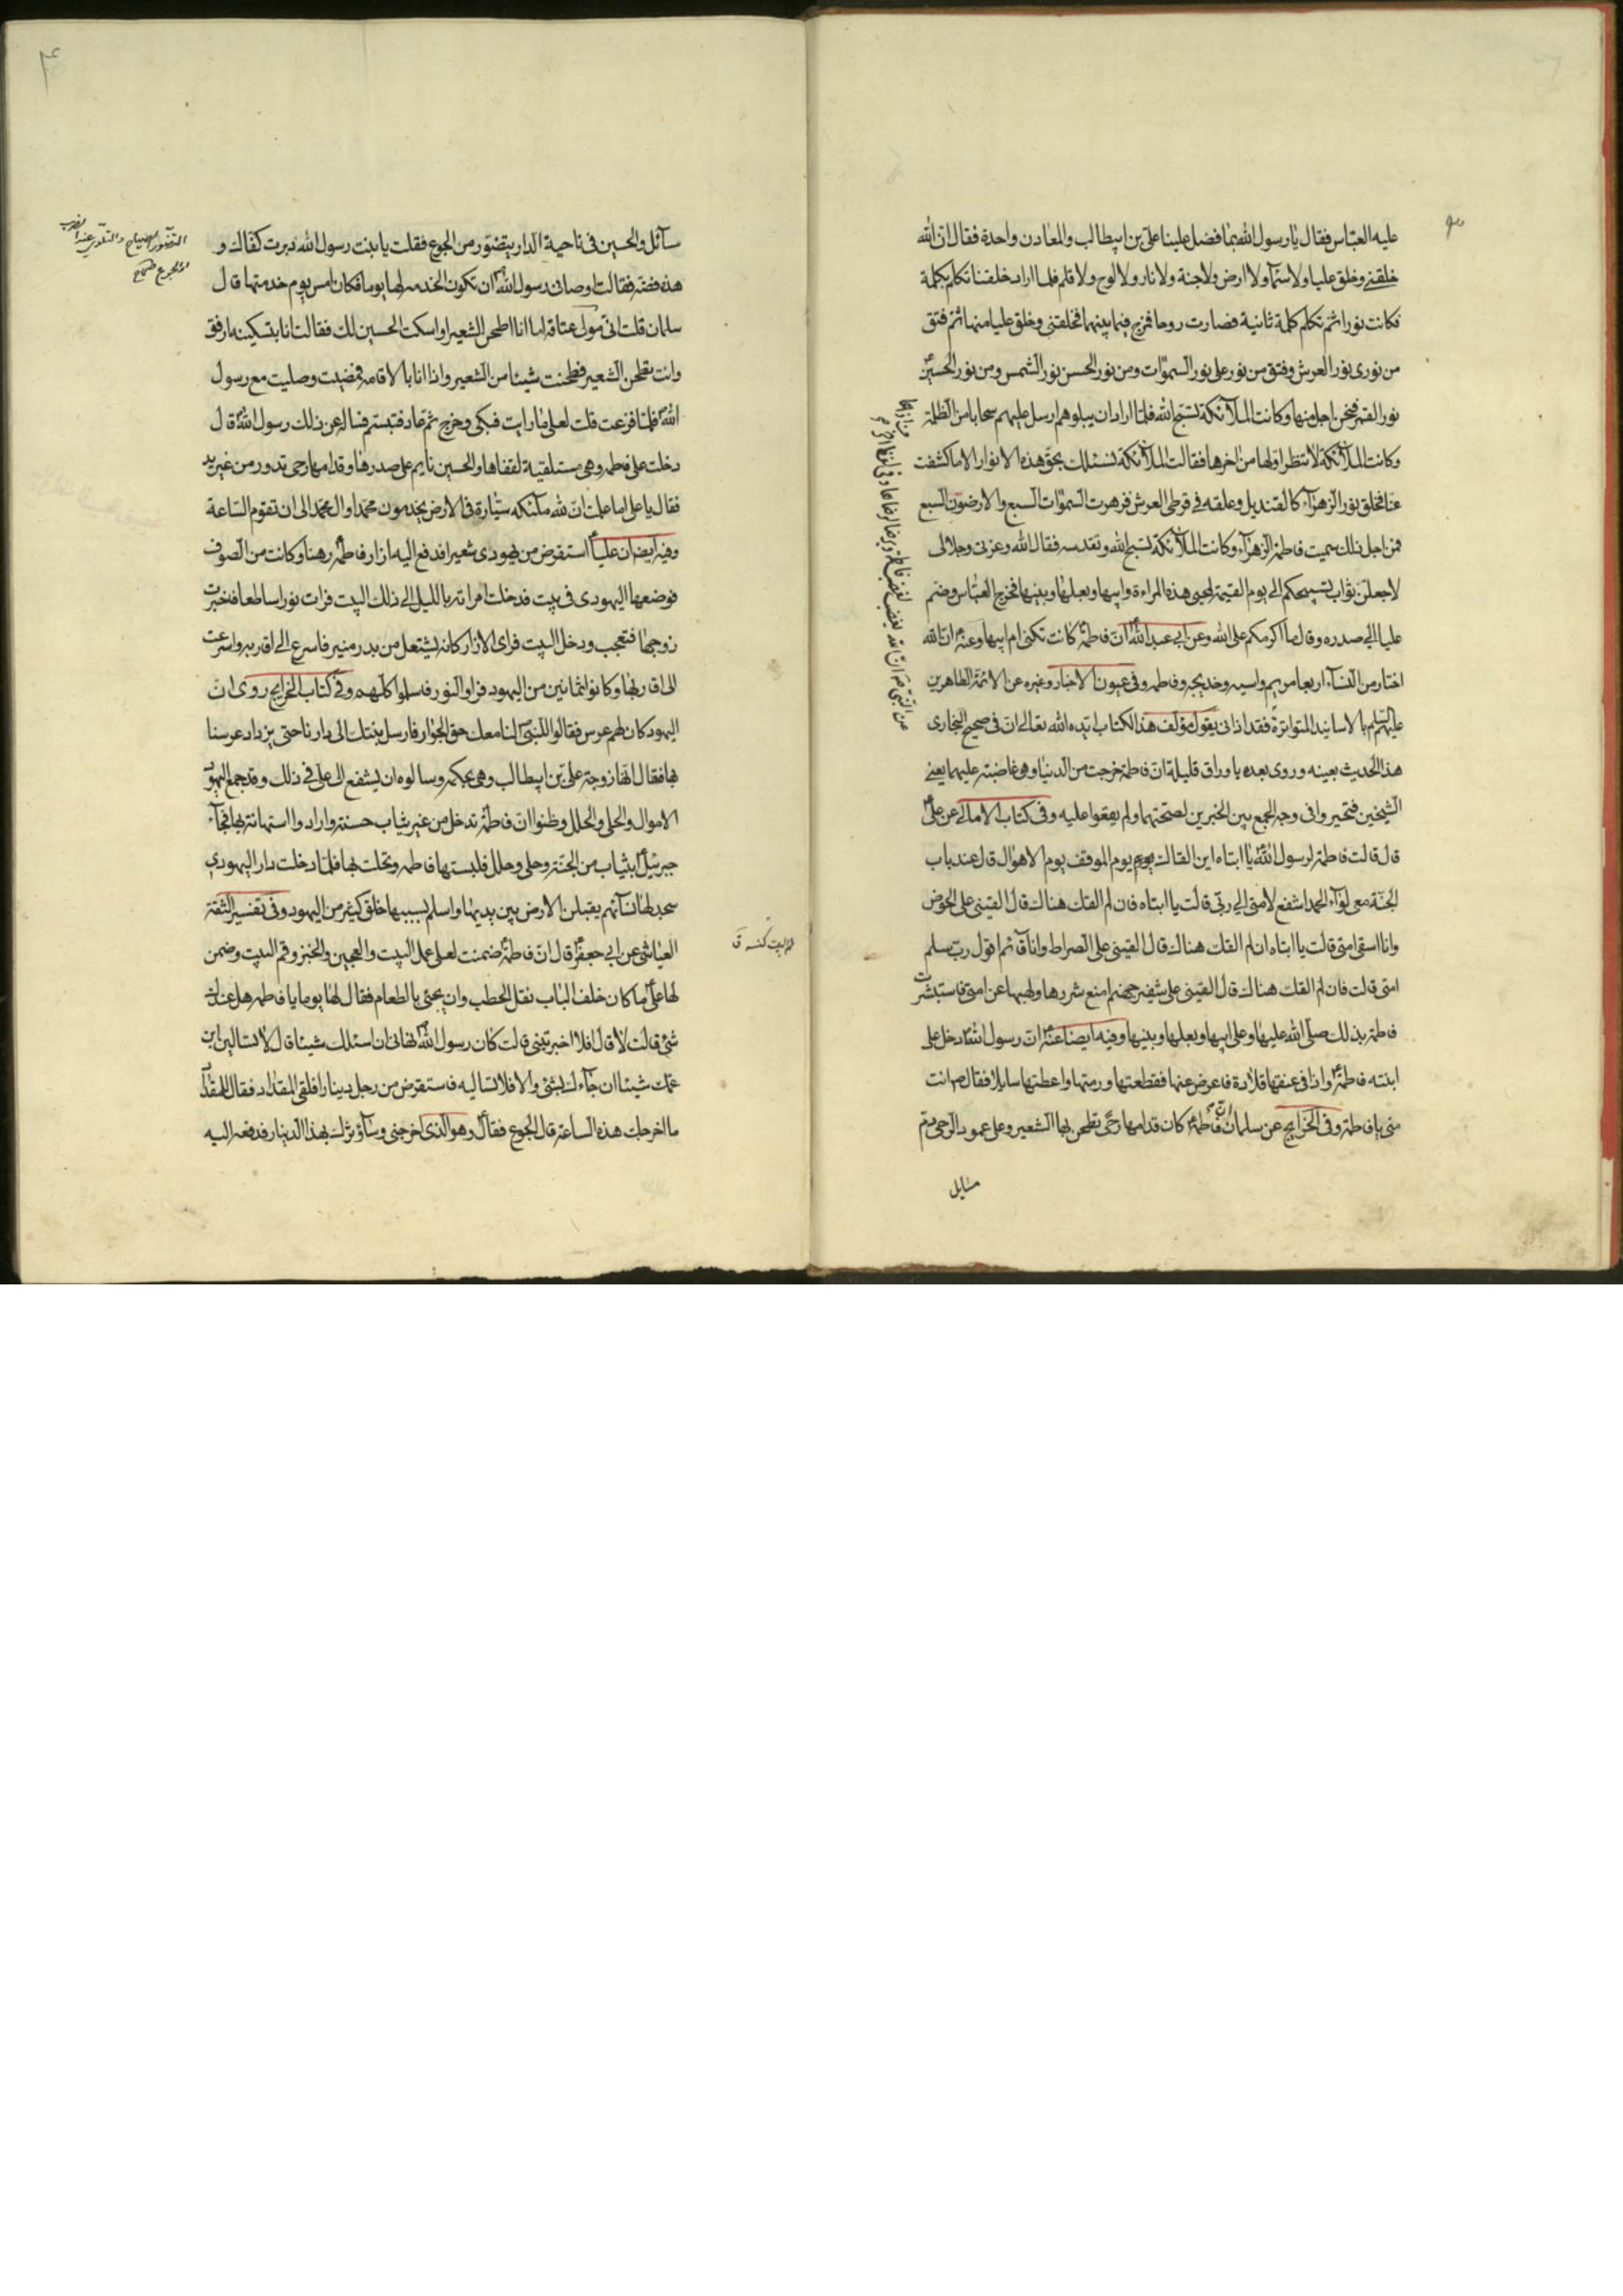 عليه العباس فقال يا رسول الله بما فضل علينا علي بن ابيطالب والمعادن واحدة فقال ان الله
خلقني وخلق عليا ولا سمآء ولا ارض ولا جنة ولا نار ولا لوح ولا قلم فلما اراد خلقنا تكلم بكلمة
فكانت نورا ثم تكلم كلمة ثانية فصارت روحا فمزج فيما بينهما فخلقني وخلق عليا منهما ثم فتق
من نوري نور العرش وفتق من نور علي نور السموات ومن نور الحسن نور الشمس ومن نور الحسين
نور القمر فنحن اجل منها وكانت الملآئكة تسبح الله فلما اراد ان يبلوهم ارسل عليهم سحابا من الظلمة
وكانت الملآئكة لا تنظر اولها من اخرها فقالت الملآئكة نسئلك بحق هذه الانوار الا ما كشفت
عنا فخلق نور الزهرآء كالقنديل وعلقه في قرطي العرش فزهرت السموات السبع والارضون السبع
فمن اجل ذلك سميت فاطمة الزهرآء وكانت الملآئكة تسبح الله وتقدسه فقال الله وعزتي وجلالي
لاجعلن ثواب تسبيحكم الى يوم القيمة لمحبي هذه المراءة وابيها وبعلها وبنيها فخرج العباس وضم
عليا الى صدره وقال ما اكرمكم على الله وعن ابي عبد الله ان فاطمة كانت تكنى ام ابيها وعنه ان الله
اختار من النسآء اربعا مريم واسيه وخديجه وفاطمه وفي عيون الاخبار وغيره عن الائمة الطاهرين
عليهم السلم بالاسانيد المتواترة فقد اذاني يقول مؤلف هذا الكتاب ايده الله تعالى ان في صحيح البخاري
هذا الحديث بعينه وروى بعده باوراق قليلة ان فاطمة خرجت من الدنيا وهي غاضبة عليهما يعني
الشيخين فتحيروا في وجه الجمع بين الخبرين لصحتهما ولم يقعوا عليه وفي كتاب الامالي عن علي
قال قالت فاطمة لرسول الله يا ابتاه اين القاك يوم الموقف يوم الاهوال قال عند باب
الجنة معي لوآء الحمد اشفع لامتي الى ربي قالت يا ابتاه فان لم القك هناك قال القيني على الحوض
وانا اسقي امتي قالت يا ابتاه ان لم القك هناك قال القيني على الصراط وانا قآئم اقول رب سلم
امتي قالت فان لم القك هناك قال القيني على شفير جهنم امنع شررها ولهبها عن امتي فاستبشرت
فاطمة بذلك صلى الله عليها وعلى ابيها وبعلها وبنيها وفيه ايضا عنه ان رسول الله دخل على
ابنته فاطمة واذا في عنقها قلادة فاعرض عنها فقطعتها ورمتها واعطتها سايلا فقال ص انت
مني يا فاطمة وفي الخرايج عن سلمان ان فاطمة كان قدامها رحى تطحن بها الشعير وعلى عمود الرحى دم
سايل
عن النبي ص ان الله يغضب لغضب فاطمة ويرضا لرضاها
سآئل والحسين في ناحية الدار يتضور من الجوع فقلت يا بنت رسول الله دبرت كفاك و
هذه فضة فقالت اوصاني رسول الله ان تكون الخدمه لها يوما فكان امس يوم خدمتها قال
سلمان قلت اني مولى عتاقه اما انا اطحن الشعير او اسكت الحسين لك فقالت انا بتسكينه ارفق
وانت تطحن الشعير فطحنت شيئا من الشعير واذا انا بالاقامه فمضيت وصليت مع رسول
الله فلما فرغت قلت لعلي ما رايت فبكى وخرج ثم عاد فتبسم فساله عن ذلك رسول الله قال
دخلت على فاطمه وهي مستلقية لقفاها والحسين نايم على صدرها وقدامها رحى تدور من غير يد
فقال يا علي اما علمت ان لله ملئكه سيارة في الارض يخدمون محمدا وال محمد الى ان تقوم الساعة
وفيه ايضا ان عليا استقرض من يهودي شعيرا فدفع اليه ازار فاطمة رهنا وكانت من الصوف
فوضعها اليهودي في بيت فدخلت امراته بالليل الى ذلك البيت فرات نورا ساطعا فاخبرت
زوجها فتعجب ودخل البيت فراى الازار كانه يشتعل من بدر منير فاسرع الى اقاربه واسرعت
الى اقاربها وكانوا ثمانين من اليهود فراوا النور فاسلموا كلهم وفي كتاب الخرايج روى ان
اليهود كان لهم عرس فقالوا للنبي لنا معك حق الجوار فارسل بنتك الى دارنا حتى يزداد عرسنا
بها فقال انها زوجة علي بن ابيطالب وهي بحكمه وسالوه ان يشفع الى علي في ذلك وقد جمع اليهود
الاموال والحلي والحلل وظنوا ان فاطمة تدخل من غير ثياب حسنة وارادوا استهانة بها فجآء
جبرئيل بثياب من الجنة وحلي وحلل فلبستها فاطمه وتحلت بها فلما دخلت دار اليهودي
سجد لها نسآئهم يقبلن الارض بين يديها واسلم بسببها خلق كثير من اليهود وفي تفسير الثقة
العياشي عن ابي جعفر قال ان فاطمة ضمنت لعلي عمل البيت والعجين والخبز وقم البيت وضمن
لها علي ما كان خلف الباب نقل الحطب وان يجئ بالطعام فقال لها يوما يا فاطمه هل عندك
شئ قالت لا قال افلا اخبرتيني قالت كان رسول الله نهاني ان اسئلك شيئا قال لا تسالين ابن
عمك شيئا ان جآءك بشئ والا فلا تساليه فاستقرض من رجل دينارا فلقى المقداد فقال للمقداد
ما اخرجك هذه الساعة قال الجوع فقال وهو الذي اخرجني وسآوثرك بهذا الدينار فدفعه اليه
التضور الصياح والتلوي عند الضرب
والجوع صحاح
قم البيت كنسه ق